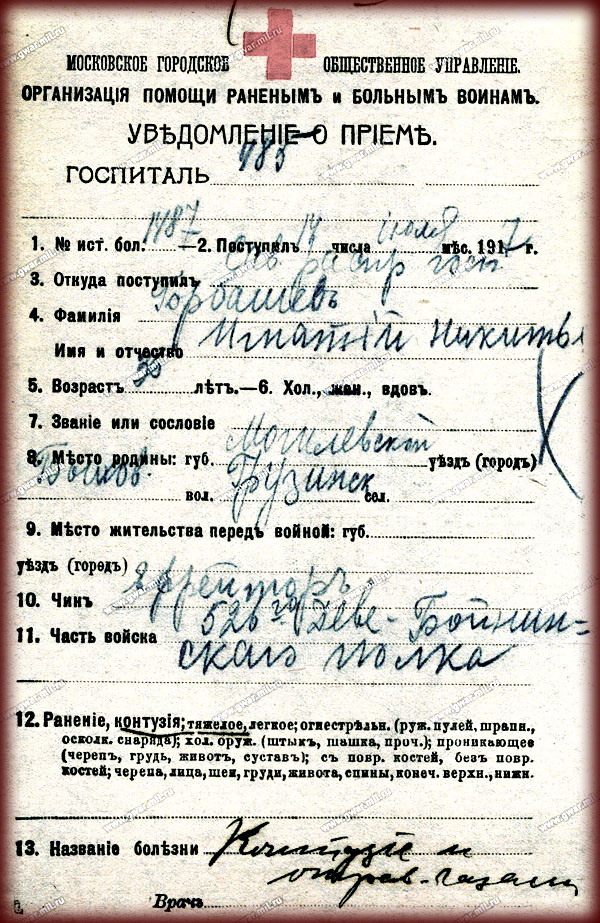 МОСКОВСКОЕ ГОРОДСКОЕ ОБЩЕСТВЕННОЕ УПРАВЛЕНІЕ.
ОРГАНИЗАЦІЯ ПОМОЩИ РАНЕНЫМЪ и БОЛЬНЫМЪ ВОИНАМЪ.
УВѢДОМЛЕНІЕ О ПРІЕМѢ.
ГОСПИТАЛЬ 985
1. № ист. бол. 1487 —2. Поступилъ 14 числа іюля мѣс. 1917 г.
3. Откуда поступилъ распр госп
4. Фамилія Горбашевъ
Имя и отчество Игнатій Никитьев
5. Возрастъ 30 лѣтъ.—6. Хол., жен., вдовъ.
7. Званіе или сословіе
8. Мѣсто родины: губ. Могилевскій уѣздъ (городъ)
Быхов. вол. Грузинск сел.
9. Мѣсто жительства передъ войной: губ.
уѣздъ (городъ)
10. Чинъ ефрейторъ
11. Часть войска 526 го Деве-Бойнин=
скаго полка
12. Раненіе, контузія; тяжелое, легкое; огнестрѣльн. (руж. пулей, шрапн.,
осколк. снаряда); хол. оруж. (штык, шашка, проч.); проникающее
(череп, грудь, животъ, сустав); с повр. костей, безъ повр.
костей; черепа, лица, шеи, груди, живота, спины, конеч. верхн., нижн.
13. Названіе болѣзни Контузіе и
отрав. газами
Врачъ
www.gwar.mil.ru